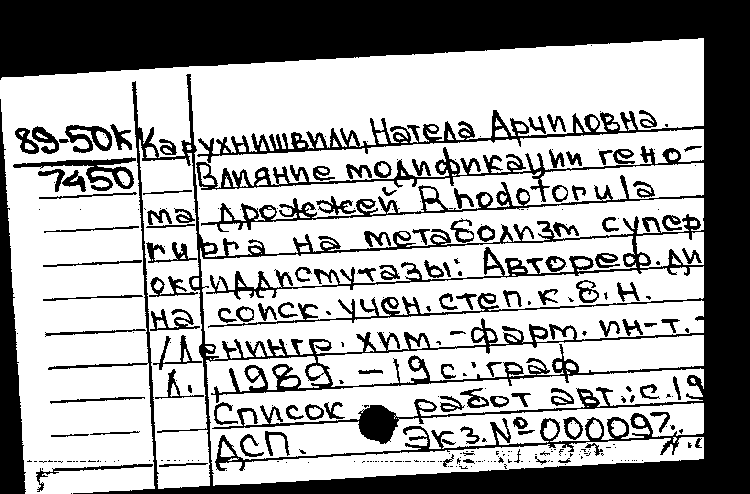 89-50к Карухнишвили, Натела Арчиловна.
7450 Влияние модификации гено-
ма дрожжей Rhodotorula
rubra на метаболизм супер
оксиддисмутазы: Автореф. ди
на соиск. учен. степ. к. б. н.
/Ленингр. хим.-фарм. ин-т.-
Л., 1989. - 19 с.: граф.
Список работ авт.: с. 19
ДСП. Экз. № 000097.